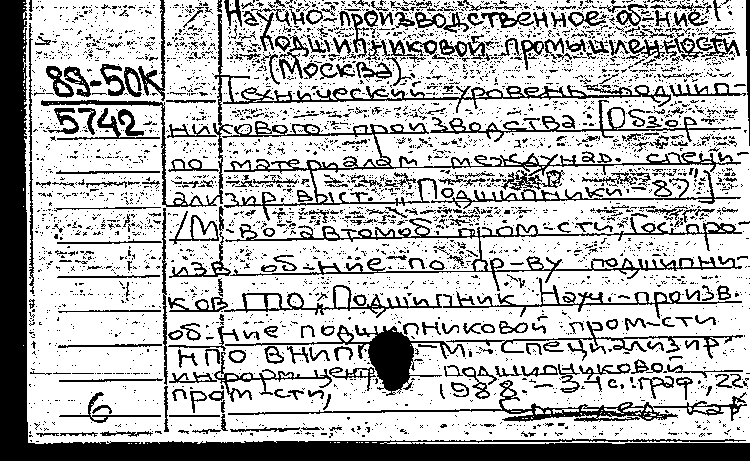 Научно-производственное об-ние
подшипниковой промышленности
(Москва).
89-50К
5742
Технический уровень подшип-
никового производства: [Обзор
по материалам междунар. специ-
ализир. выст. „Подшипники-87"]
/М-во автомоб. пром-сти, Гос. про-
изв. об-ние по пр-ву подшипни-
ков ГПО „Подшипник, Науч.-произв.
об-ние подшипниковой пром-сти
НПО ВНИПП - М.: Специализир
информ. центр подшипниковой
пром-сти, 1988. - 34 с.: граф., 22
6
См. след. кар